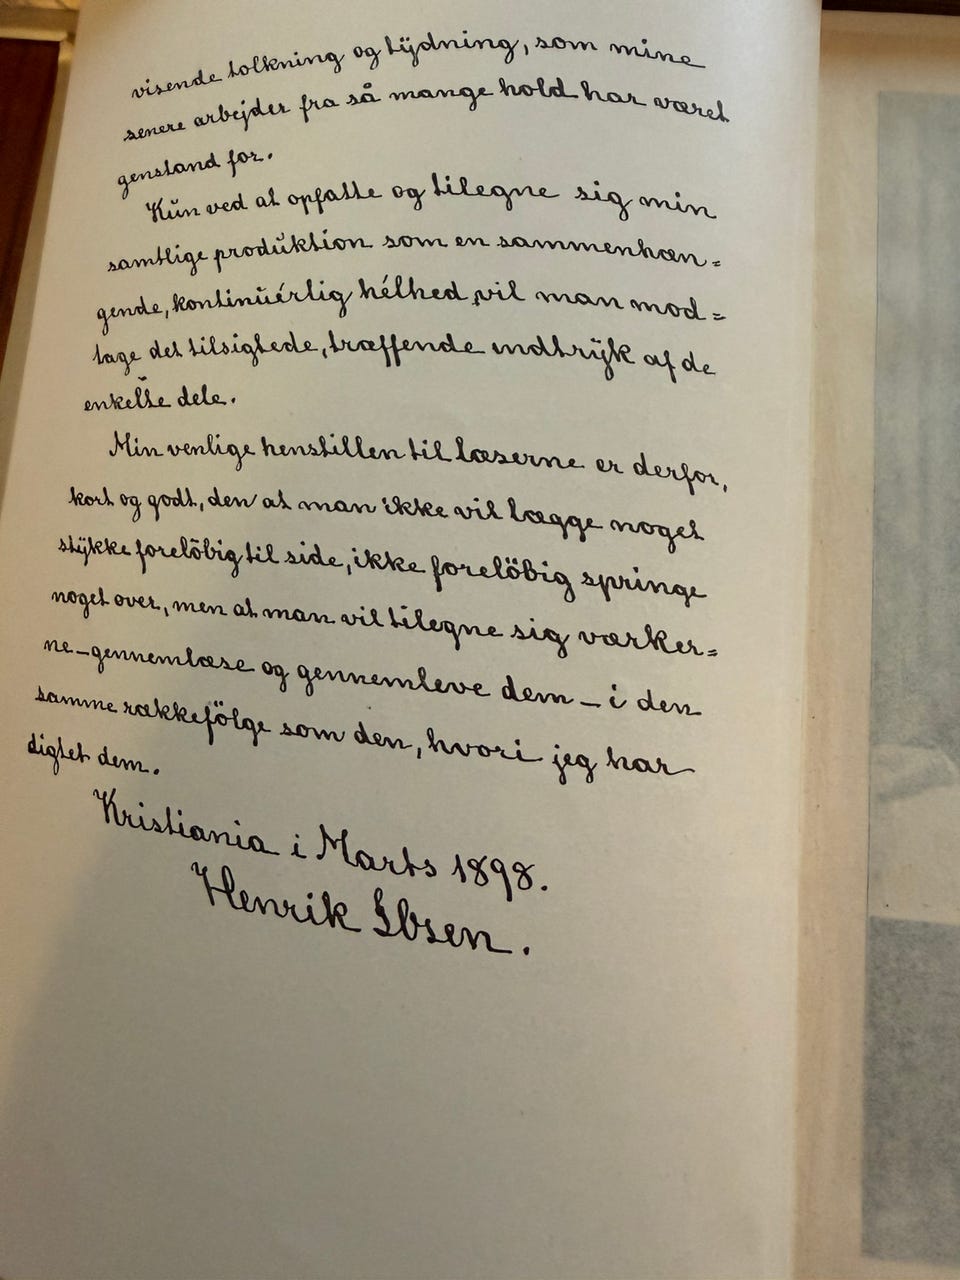 visende tolkning og tÿdning, som mine
senere arbejder fra så mange hold har været
genstand for.
Kun ved at opfatte og tilegne sig min
samtlige produktion som en sammenhæn=
gende, kontinuérlig hélhed, vil man mod=
tage det tilsigtede, træffende indtrÿk af de
enkelte dele.
Min venlige henstillen til læserne er derfor,
kort og godt, den at man ikke vil lægge noget
stÿkke forelöbig til side, ikke forelöbig springe
noget over, men at man vil tilegne sig værker=
ne – gennemlæse og gennemleve dem – i den
samme rækkefölge som den, hvori jeg har
digtet dem.
Kristiania i Marts 1898.
Henrik Ibsen.